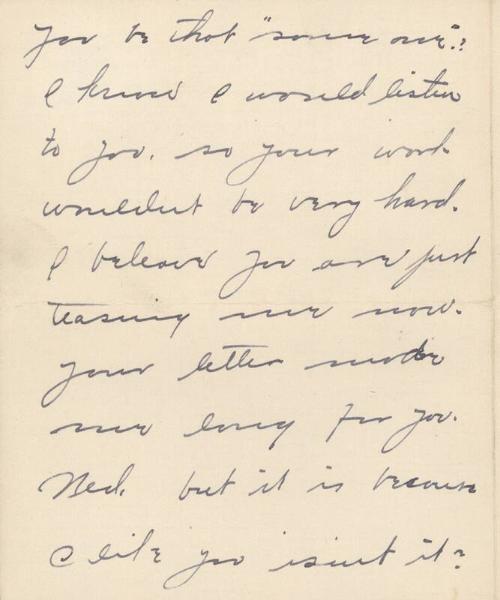 you be that "some one".?
I know I would listen
to you, so your work
wouldent be very hard.
I beleave you are just
teasing me now.
your letter made
me long for you.
Ned, but it is because
I like you isint it?